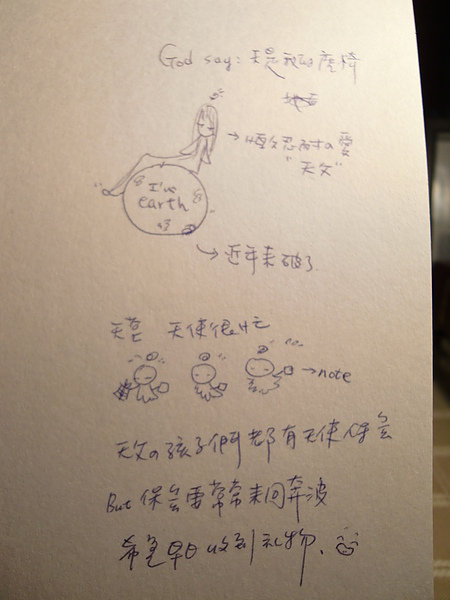 God say: 天是我的座椅
→恆久忍耐の愛
"天父"
I've
earth
→近年來破了
天莫 天使很忙
→note
天父の孩子們都有天使保羅
But 保羅要常常來回奔波
希望早日收到禮物.